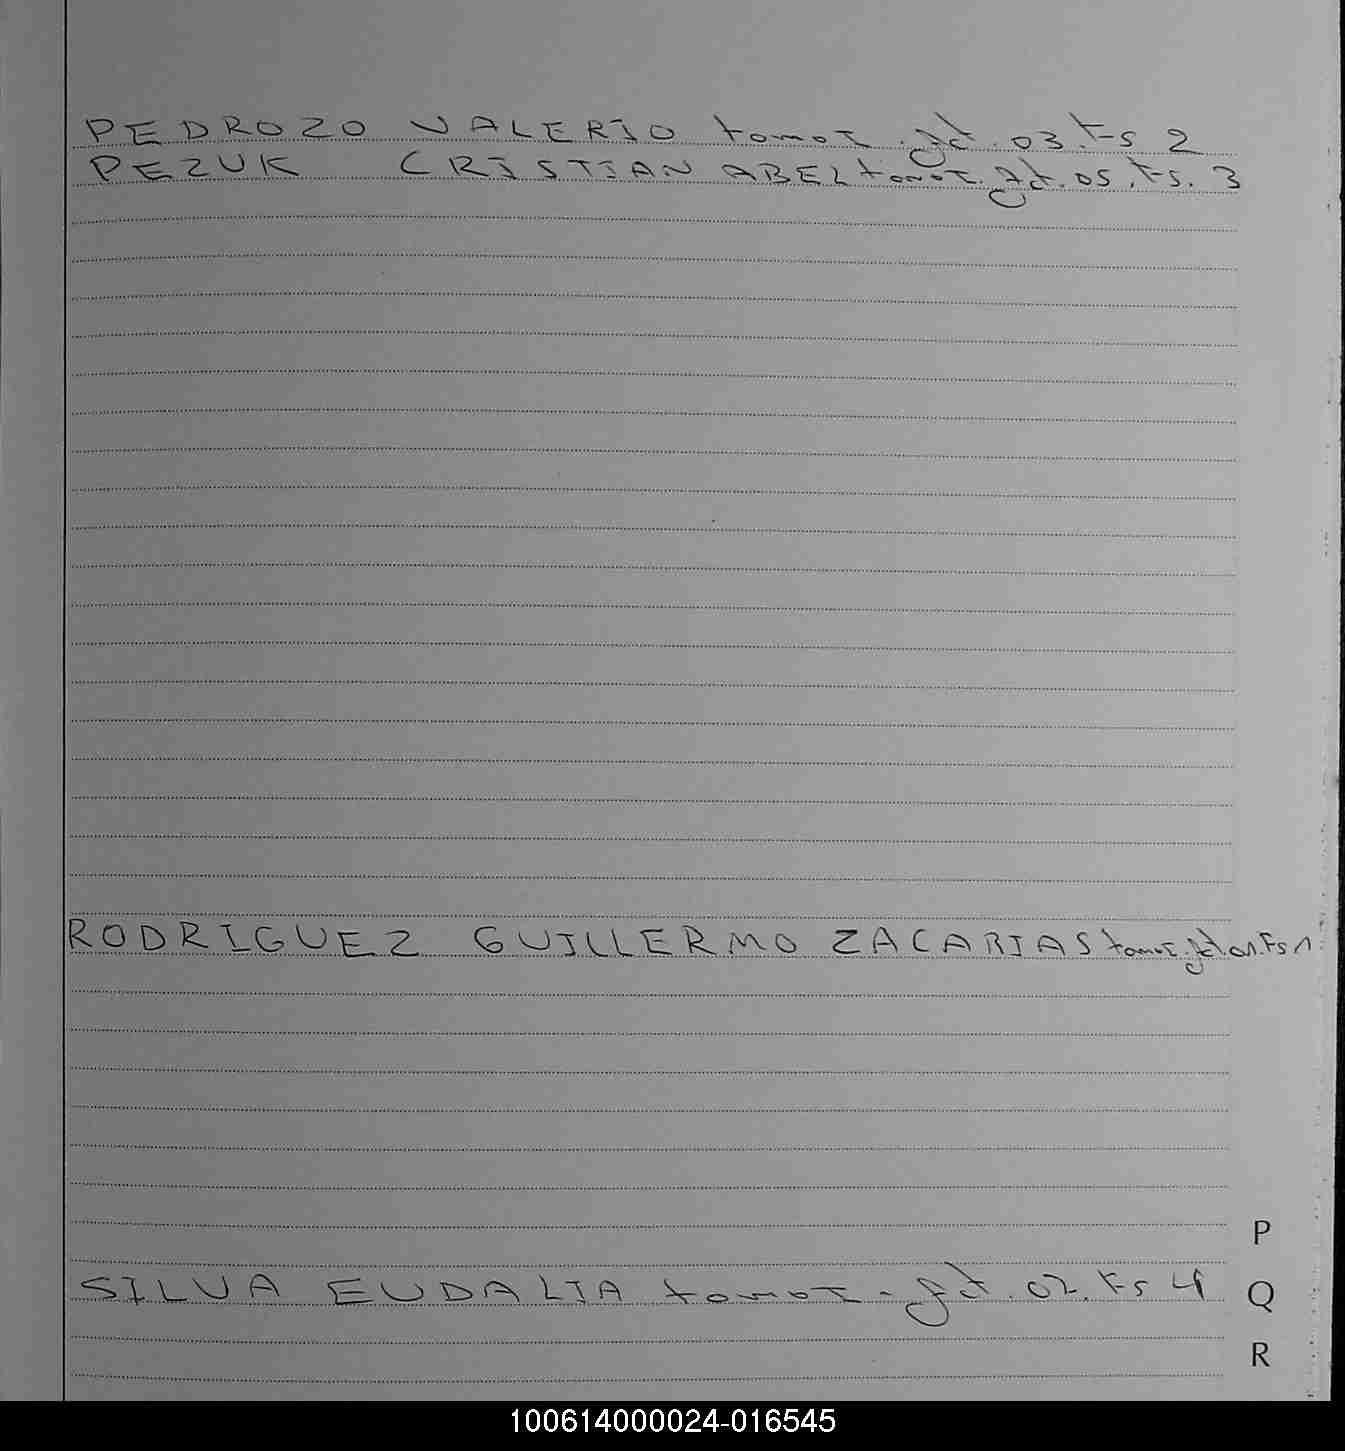 PEDROZO VALERIO tomo I. gd. 03. Fs 2
PEZUK CRISTIAN ABEL tomo I. gd. 05. Fs. 3
RODRIGUEZ GUILLERMO ZACARIAS tomo I. gd. 01. Fs 1
P
SILVA EUDALIA tomo I - gd. 02. Fs 4
Q
R
100614000024-016545